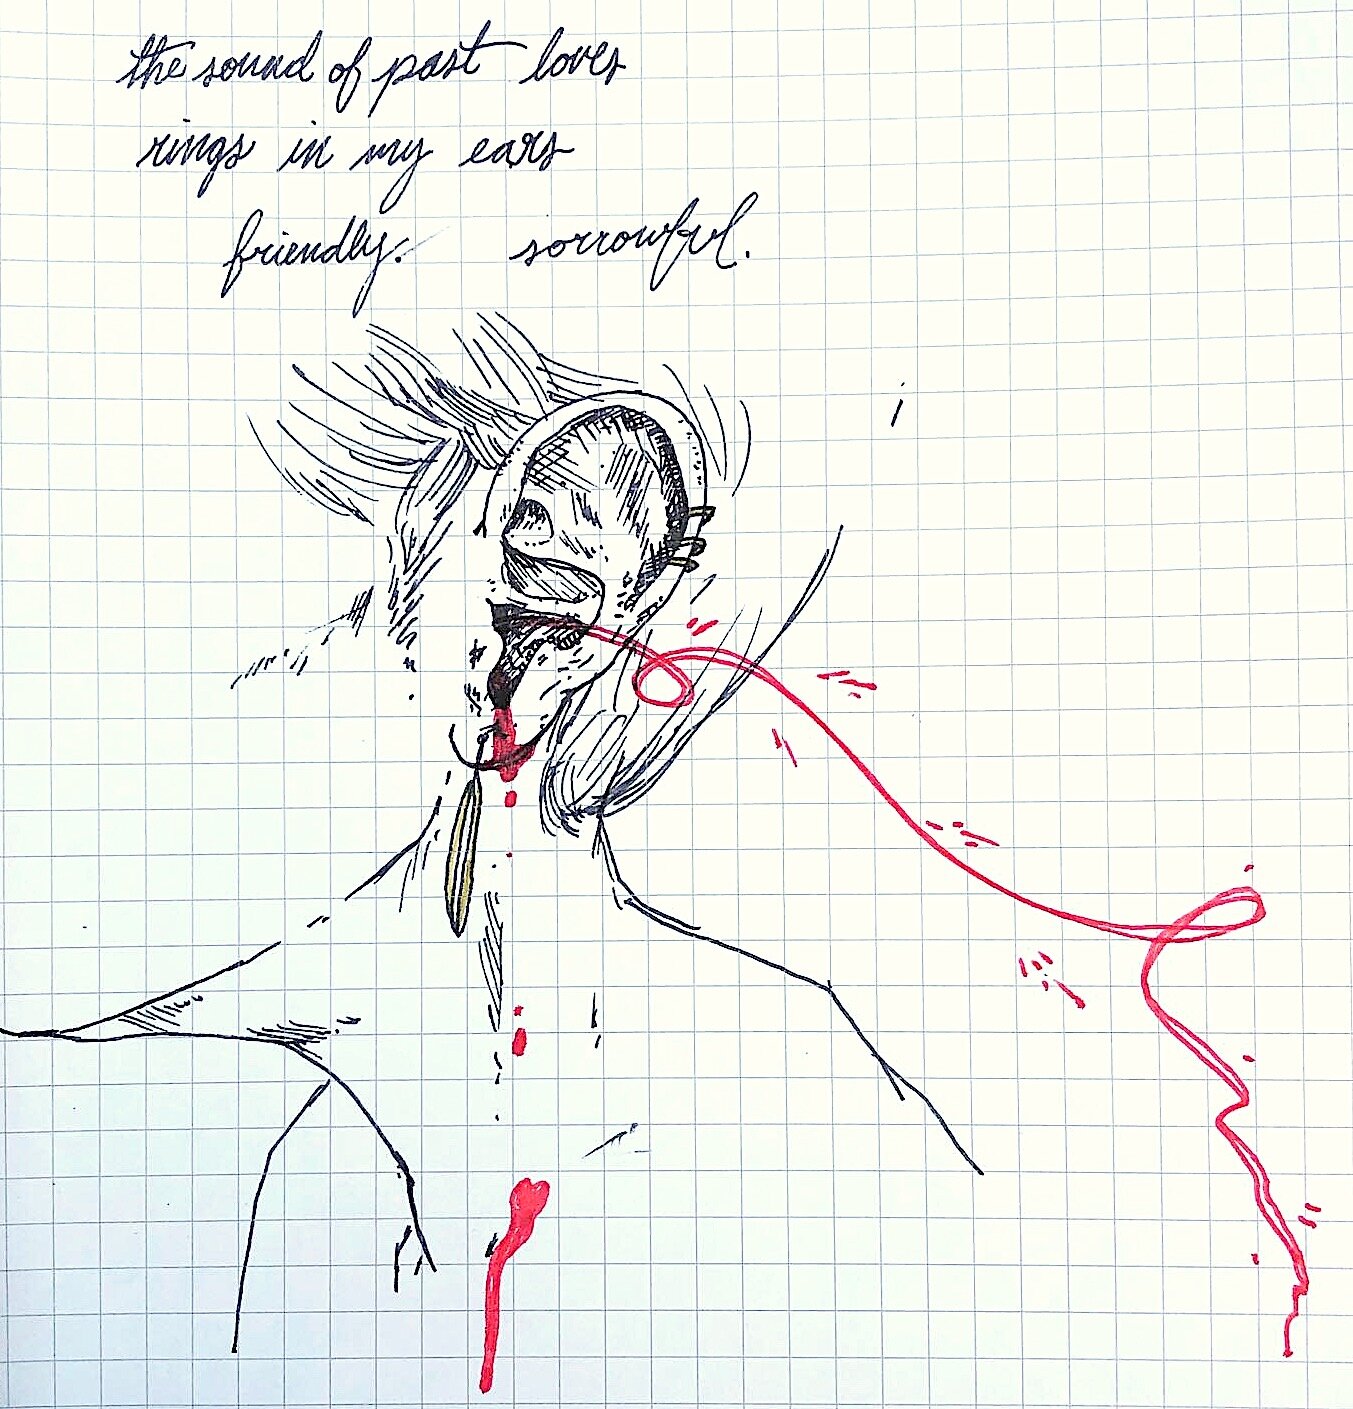 the sound of past loves
rings in my ears
friendly. sorrowful.